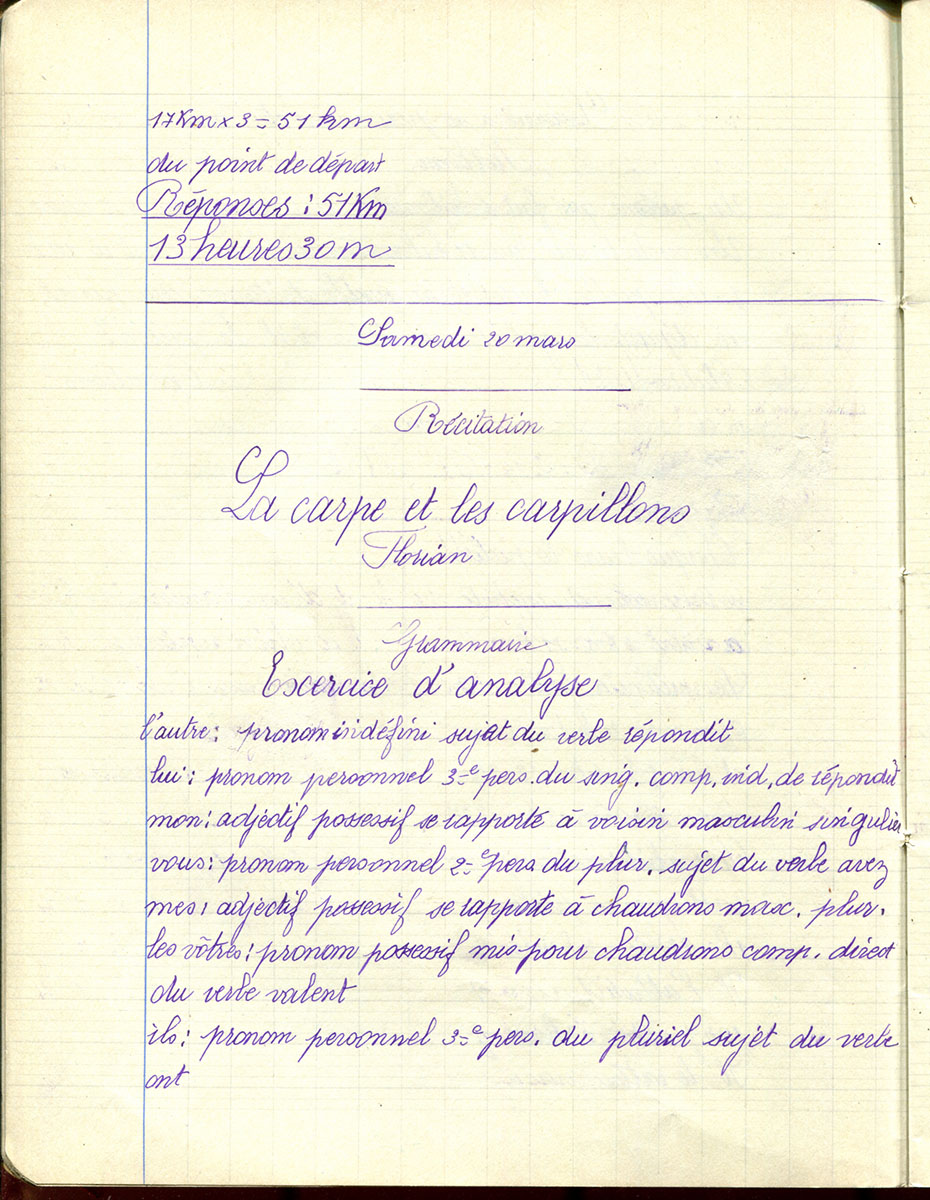 17Km x 3 = 51 km
du point de départ
Réponses : 51Km
13 heures 30 m
Samedi 20 mars
Récitation
La carpe et les carpillons
Florian
Grammaire
Excercice d'analyse
l'autre : pronom indéfini sujet du verbe répondit
lui : pronom personnel 3e pers. du sing. comp. ind. de répondit
mon : adjectif possessif se rapporte à voisin masculin singulier
vous : pronom personnel 2e pers. du plur. sujet du verbe avez
mes : adjectif possessif se rapporte à chaudrons masc. plur.
les vôtres : pronom possessif mis pour chaudrons comp. direct
du verbe valent
ils : pronom personnel 3e pers. du pluriel sujet du verbe
ont